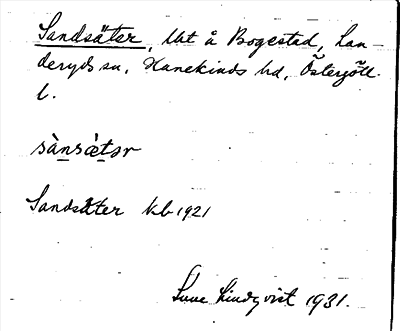 Sandsäter, lht å Bogestad, Lan-
deryds sn, Hanekinds hd, Östergötl.
l.
sànsæ̀tər
Sandsäter kb 1921
Sune Lindqvist 1931.